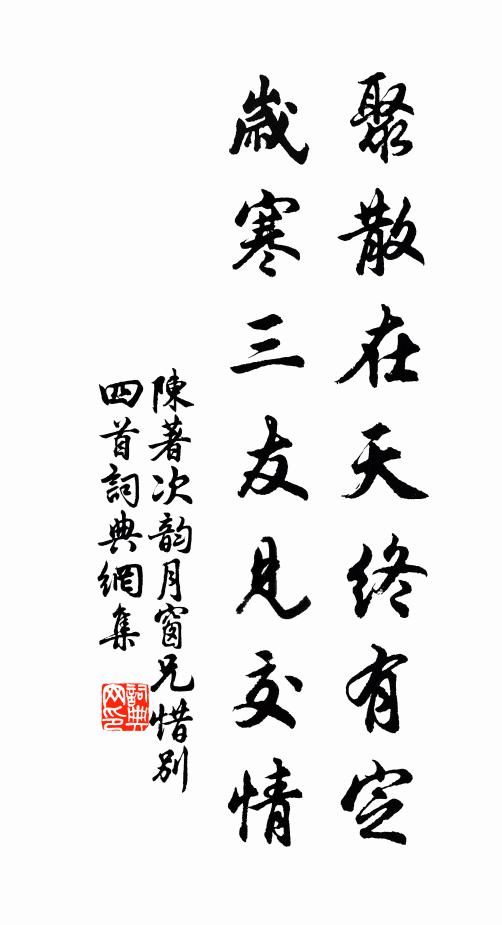 聚散在天終有定
歲寒三友見交情
陳著次韵月窗兄惜別
四首詞典網集
詞典網印